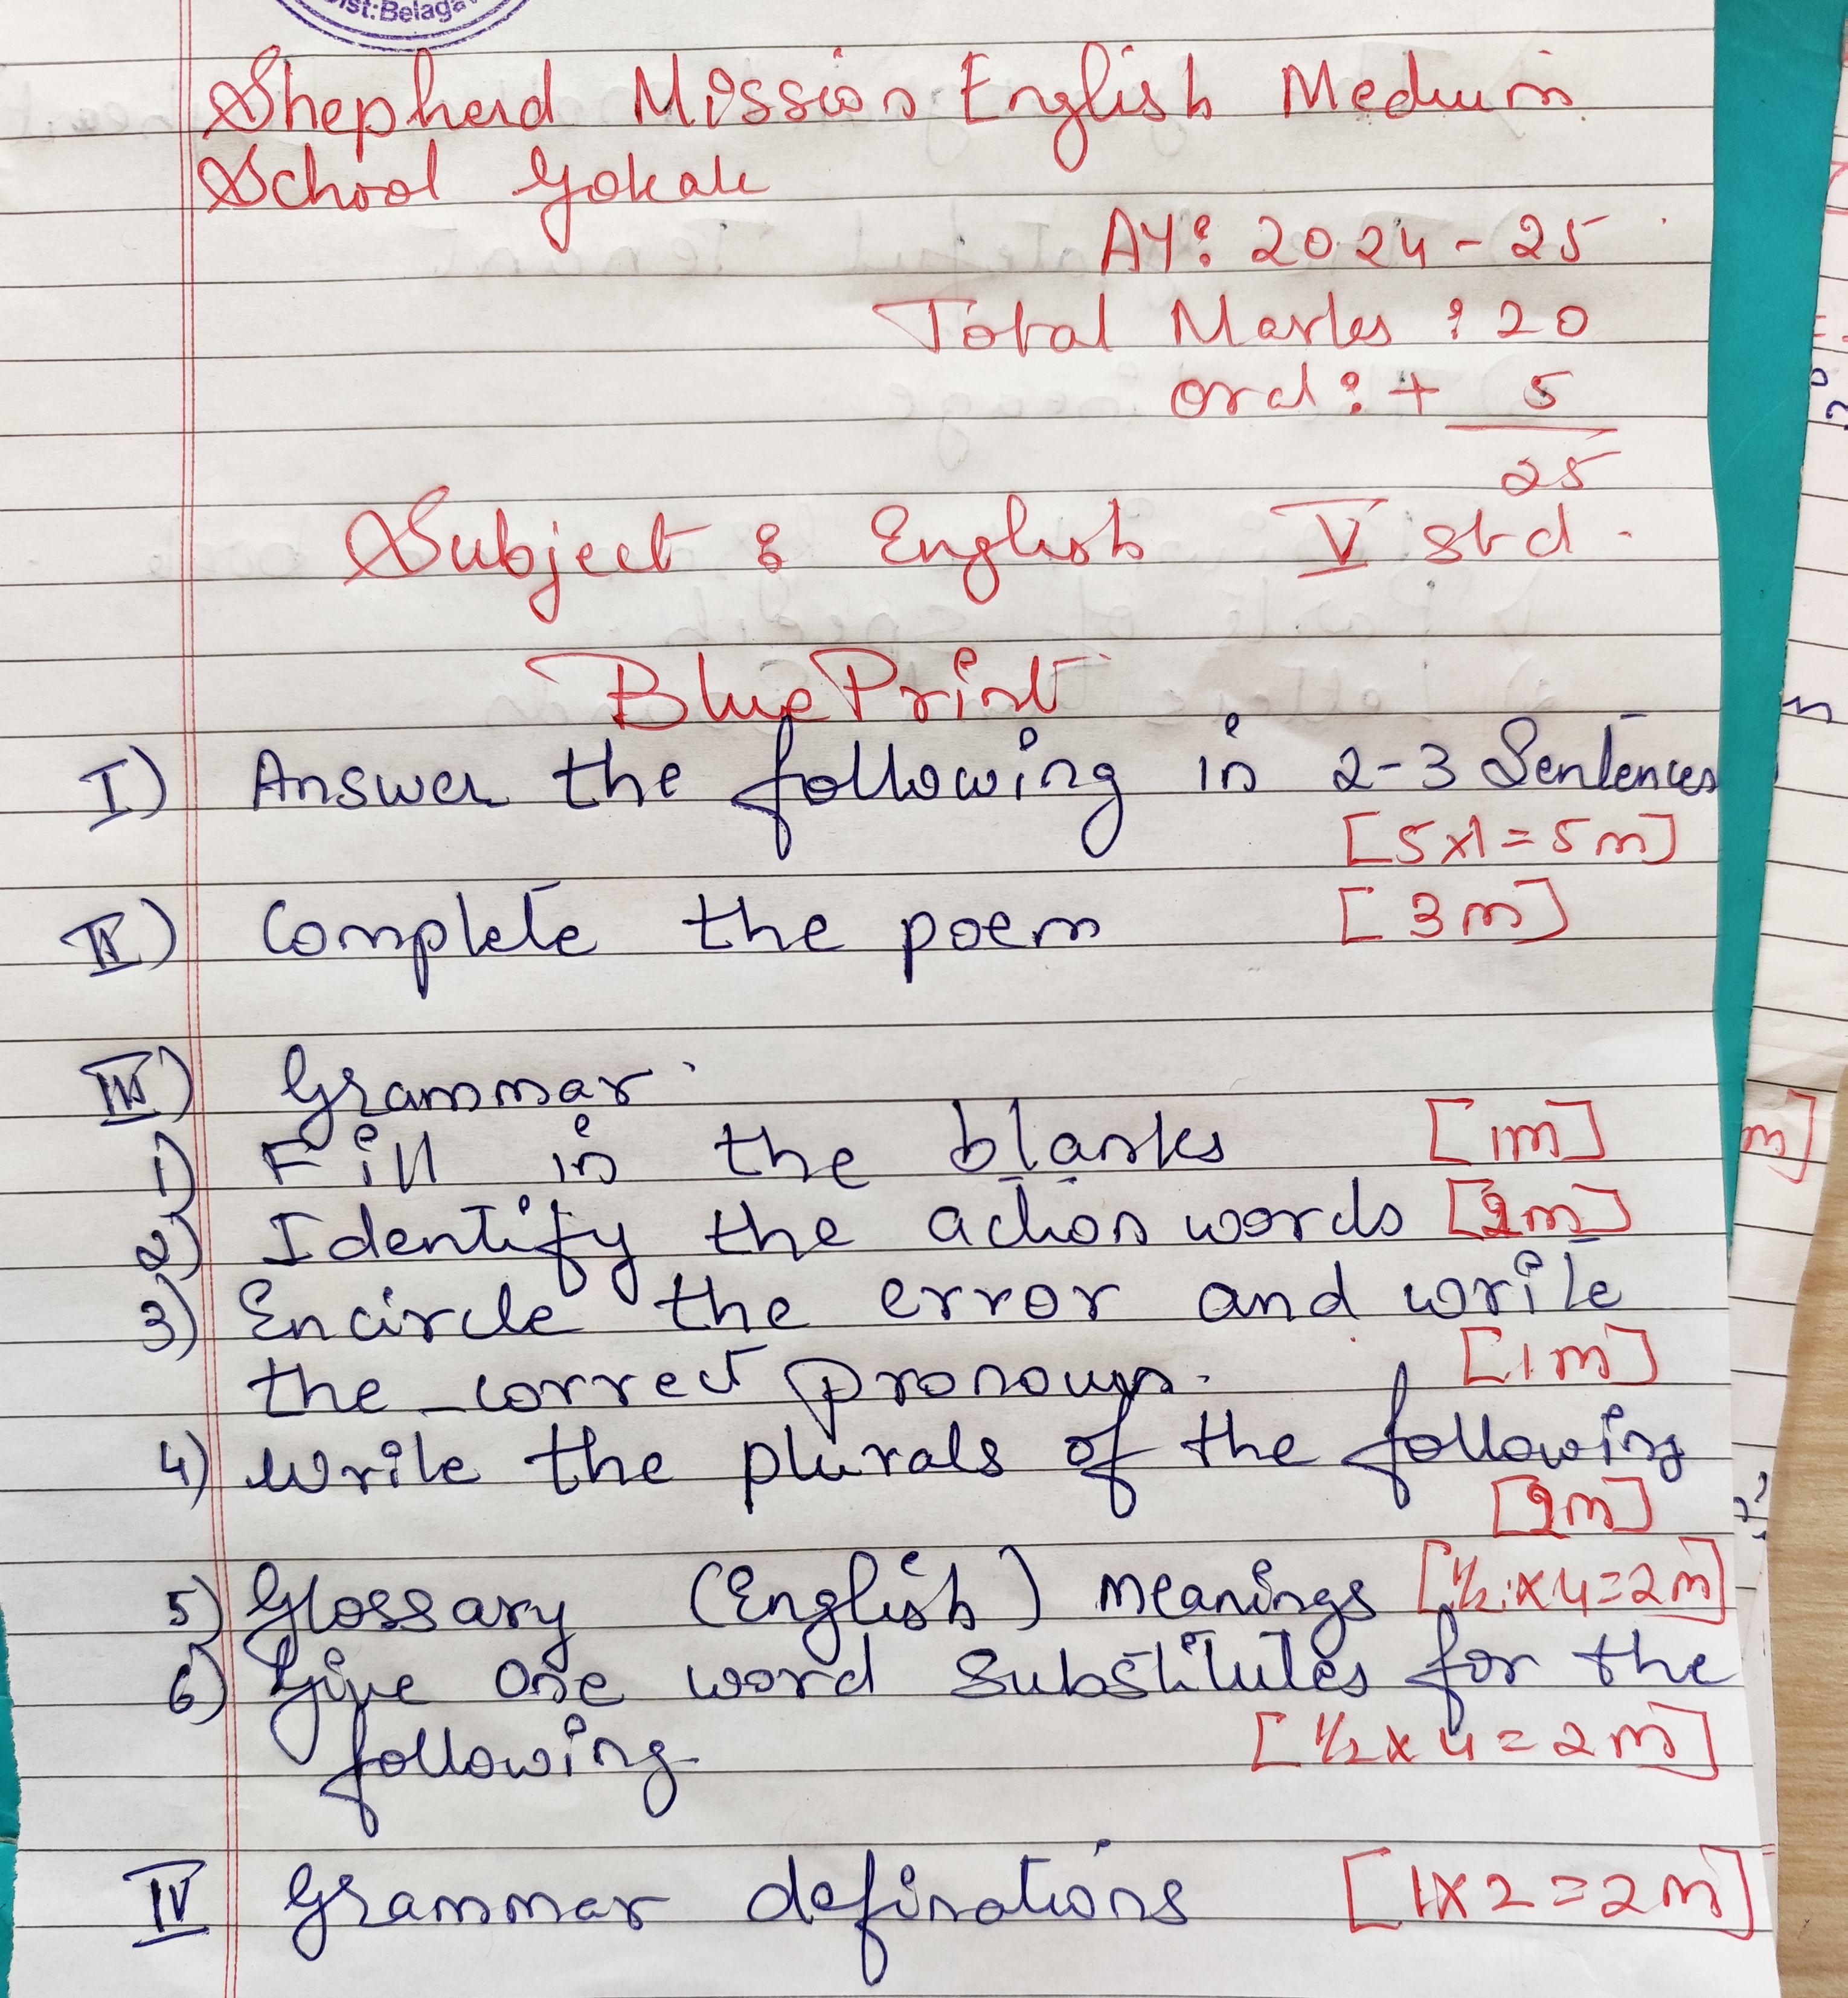 Dist:Belaga
Shepherd Mission English Medium
School Gokak
AY: 2024-25
Total Marks : 20
oral : + 5
25
Subject : English V std.
Blue Print
I) Answer the following in 2-3 Sentences
[5x1=5m]
II) Complete the poem [3m]
III) Grammar
1) Fill in the blanks [1m]
2) Identify the action words [2m]
3) Encircle the error and write
the correct pronoun. [1m]
4) Write the plurals of the following
[2m]
5) Glossary (English) meanings [1/2 x 4=2m]
6) Give one word substitutes for the
following [1/2 x 4=2m]
IV Grammar definations [1x2=2m]